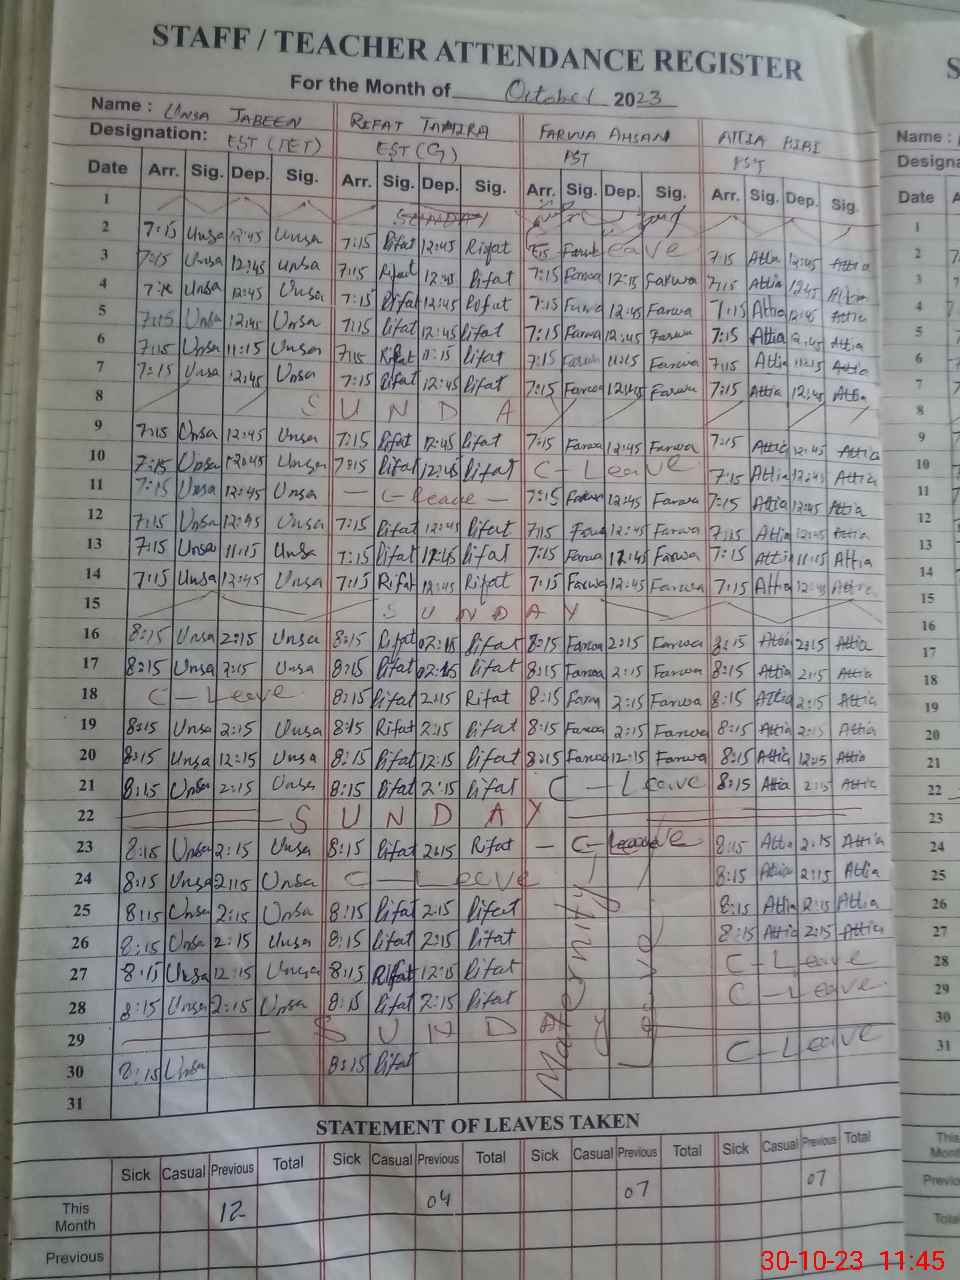 STAFF / TEACHER ATTENDANCE REGISTER S
For the Month of October 2023
Name : UNSA JABEEN RIFAT TAHIRA FARWA AHSAN ATTIA BIBI Name :
Designation: EST (PET) EST (G) PST PST Designa
Date Arr. Sig. Dep. Sig. Arr. Sig. Dep. Sig. Arr. Sig. Dep. Sig. Arr. Sig. Dep. Sig. Date A
1 SUNDAY 1
2 7:15 Unsa 12:45 Unsa 7:15 Rifat 12:45 Rifat Leave 7:15 Attia 12:45 Attia 2
3 7:15 Unsa 12:45 Unsa 7:15 Rifat 12:45 Rifat 7:15 Farwa 12:15 Farwa 7:15 Attia 12:45 Attia 3
4 Unsa 12:45 Unsa 7:15 Rifat 12:45 Rifat 7:15 Farwa 12:45 Farwa 7:15 Attia 12:45 Attia 4
5 7:15 Unsa 12:45 Unsa 7:15 Rifat 12:45 Rifat 7:15 Farwa 12:45 Farwa 7:15 Attia 12:45 Attia 5
6 7:15 Unsa 11:15 Unsa 7:15 Rifat 11:15 Rifat 7:15 Farwa 11:15 Farwa 7:15 Attia 11:15 Attia 6
7 7:15 Unsa 12:45 Unsa 7:15 Rifat 12:45 Rifat 7:15 Farwa 12:45 Farwa 7:15 Attia 12:45 Attia 7
8 S U N D A 8
9 7:15 Unsa 12:45 Unsa 7:15 Rifat 12:45 Rifat 7:15 Farwa 12:45 Farwa 7:15 Attia 12:45 Attia 9
10 7:15 Unsa Unsa 7:15 Rifat 12:45 Rifat C - Leave 7:15 Attia 12:45 Attia 10
11 7:15 Unsa 12:45 Unsa - C-Leave - 7:15 Farwa 12:45 Farwa 7:15 Attia 12:45 Attia 11
12 7:15 Unsa 12:45 Unsa 7:15 Rifat 12:45 Rifat 7:15 Farwa 12:45 Farwa 7:15 Attia 12:45 Attia 12
13 7:15 Unsa 11:15 Unsa 7:15 Rifat Rifat 7:15 Farwa Farwa 7:15 Attia 11:15 Attia 13
14 7:15 Unsa 12:45 Unsa 7:15 Rifat 12:45 Rifat 7:15 Farwa 12:45 Farwa 7:15 Attia 12:45 Attia 14
15 S U N D A Y 15
16 8:15 Unsa 2:15 Unsa 8:15 Rifat 02:15 Rifat 8:15 Farwa 2:15 Farwa 8:15 Attia 2:15 Attia 16
17 8:15 Unsa 2:15 Unsa 8:15 Rifat 02:15 Rifat 8:15 Farwa 2:15 Farwa 8:15 Attia 2:15 Attia 17
18 C - Leave 8:15 Rifat 2:15 Rifat 8:15 Farwa 2:15 Farwa 8:15 Attia 2:15 Attia 18
19 8:15 Unsa 2:15 Unsa 8:15 Rifat 2:15 Rifat 8:15 Farwa 2:15 Farwa 8:15 Attia 2:15 Attia 19
20 8:15 Unsa 12:15 Unsa 8:15 Rifat 12:15 Rifat 8:15 Farwa 12:15 Farwa 8:15 Attia 12:15 Attia 20
21 8:15 Unsa 2:15 Unsa 8:15 Rifat 2:15 Rifat C - Leave 8:15 Attia 2:15 Attia 21
22 S U N D A Y 22
23 8:15 Unsa 2:15 Unsa 8:15 Rifat 2:15 Rifat - C-Leave 8:15 Attia 2:15 Attia 23
24 8:15 Unsa 2:15 Unsa C - Leave 8:15 Attia 2:15 Attia 24
25 8:15 Unsa 2:15 Unsa 8:15 Rifat 2:15 Rifat Maternity Leave 8:15 Attia 2:15 Attia 25
26 8:15 Unsa 2:15 Unsa 8:15 Rifat 2:15 Rifat 8:15 Attia 2:15 Attia 26
27 8:15 Unsa 12:15 Unsa 8:15 Rifat 12:15 Rifat C - Leave 27
28 8:15 Unsa 2:15 Unsa 8:15 Rifat 2:15 Rifat C - Leave 28
29 S U N D A Y 29
30 8:15 Unsa 8:15 Rifat C - Leave 30
31 31
STATEMENT OF LEAVES TAKEN
Sick Casual Previous Total Sick Casual Previous Total Sick Casual Previous Total Sick Casual Previous Total
This Month 12 04 07 07 This Mon
Previous Previo
Total
30-10-23 11:45